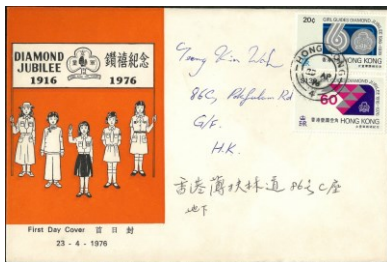 DIAMOND
JUBILEE
1916
鑽禧紀念
1976
First Day Cover 首日封
23 - 4 - 1976
20c
GIRL GUIDES DIAMOND
HONG KONG
60
HONG KONG
HONG KONG
86C, Pokfulam Rd
G/F.
H.K.
香港薄扶林道 86号C座
地下